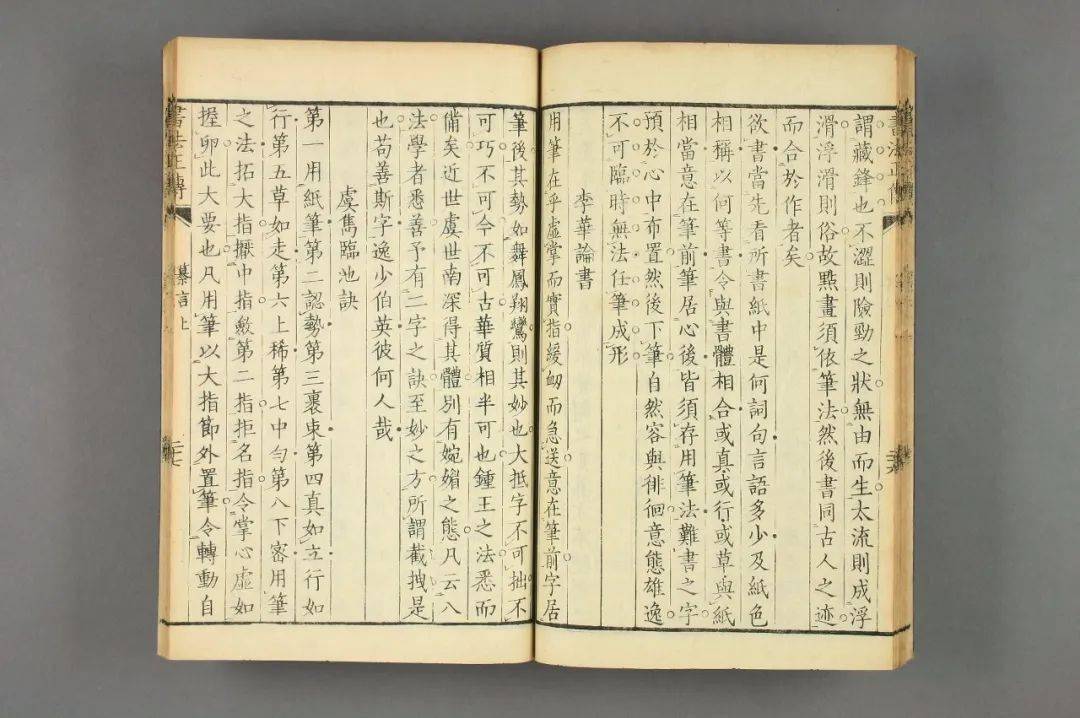 謂藏鋒也不澀則險勁之狀無由而生太流則成浮
滑浮滑則俗故㸃畫須依筆法然後書同古人之迹
而合於作者矣
欲書當先看所書紙中是何詞句言語多少及紙色
相稱以何等書令與書體相合或真或行或草與紙
相當意在筆前筆居心後皆須存用筆法難書之字
預於心中布置然後下筆自然容與徘徊意態雄逸
不可臨時無法任筆成形
李華論書
用筆在乎虛掌而實指緩衂而急送意在筆前字居
筆後其勢如舞鳳翔鸞則其妙也大抵字不可拙不
可巧不可今不可古華質相半可也鍾王之法悉而
備矣近世虞世南深得其體別有婉媚之態凡云八
法學者悉善予有二字之訣至妙之方所謂截拽是
也苟善斯字逸少伯英彼何人哉
虞雋臨池訣
第一用紙筆第二認勢第三裹束第四真如立行如
行第五草如走第六上稀第七中勻第八下密用筆
之法拓大指擫中指斂第二指拒名指令掌心虛如
握卵此大要也凡用筆以大指節外置筆令轉動自
書法正傳
纂言上
二十七